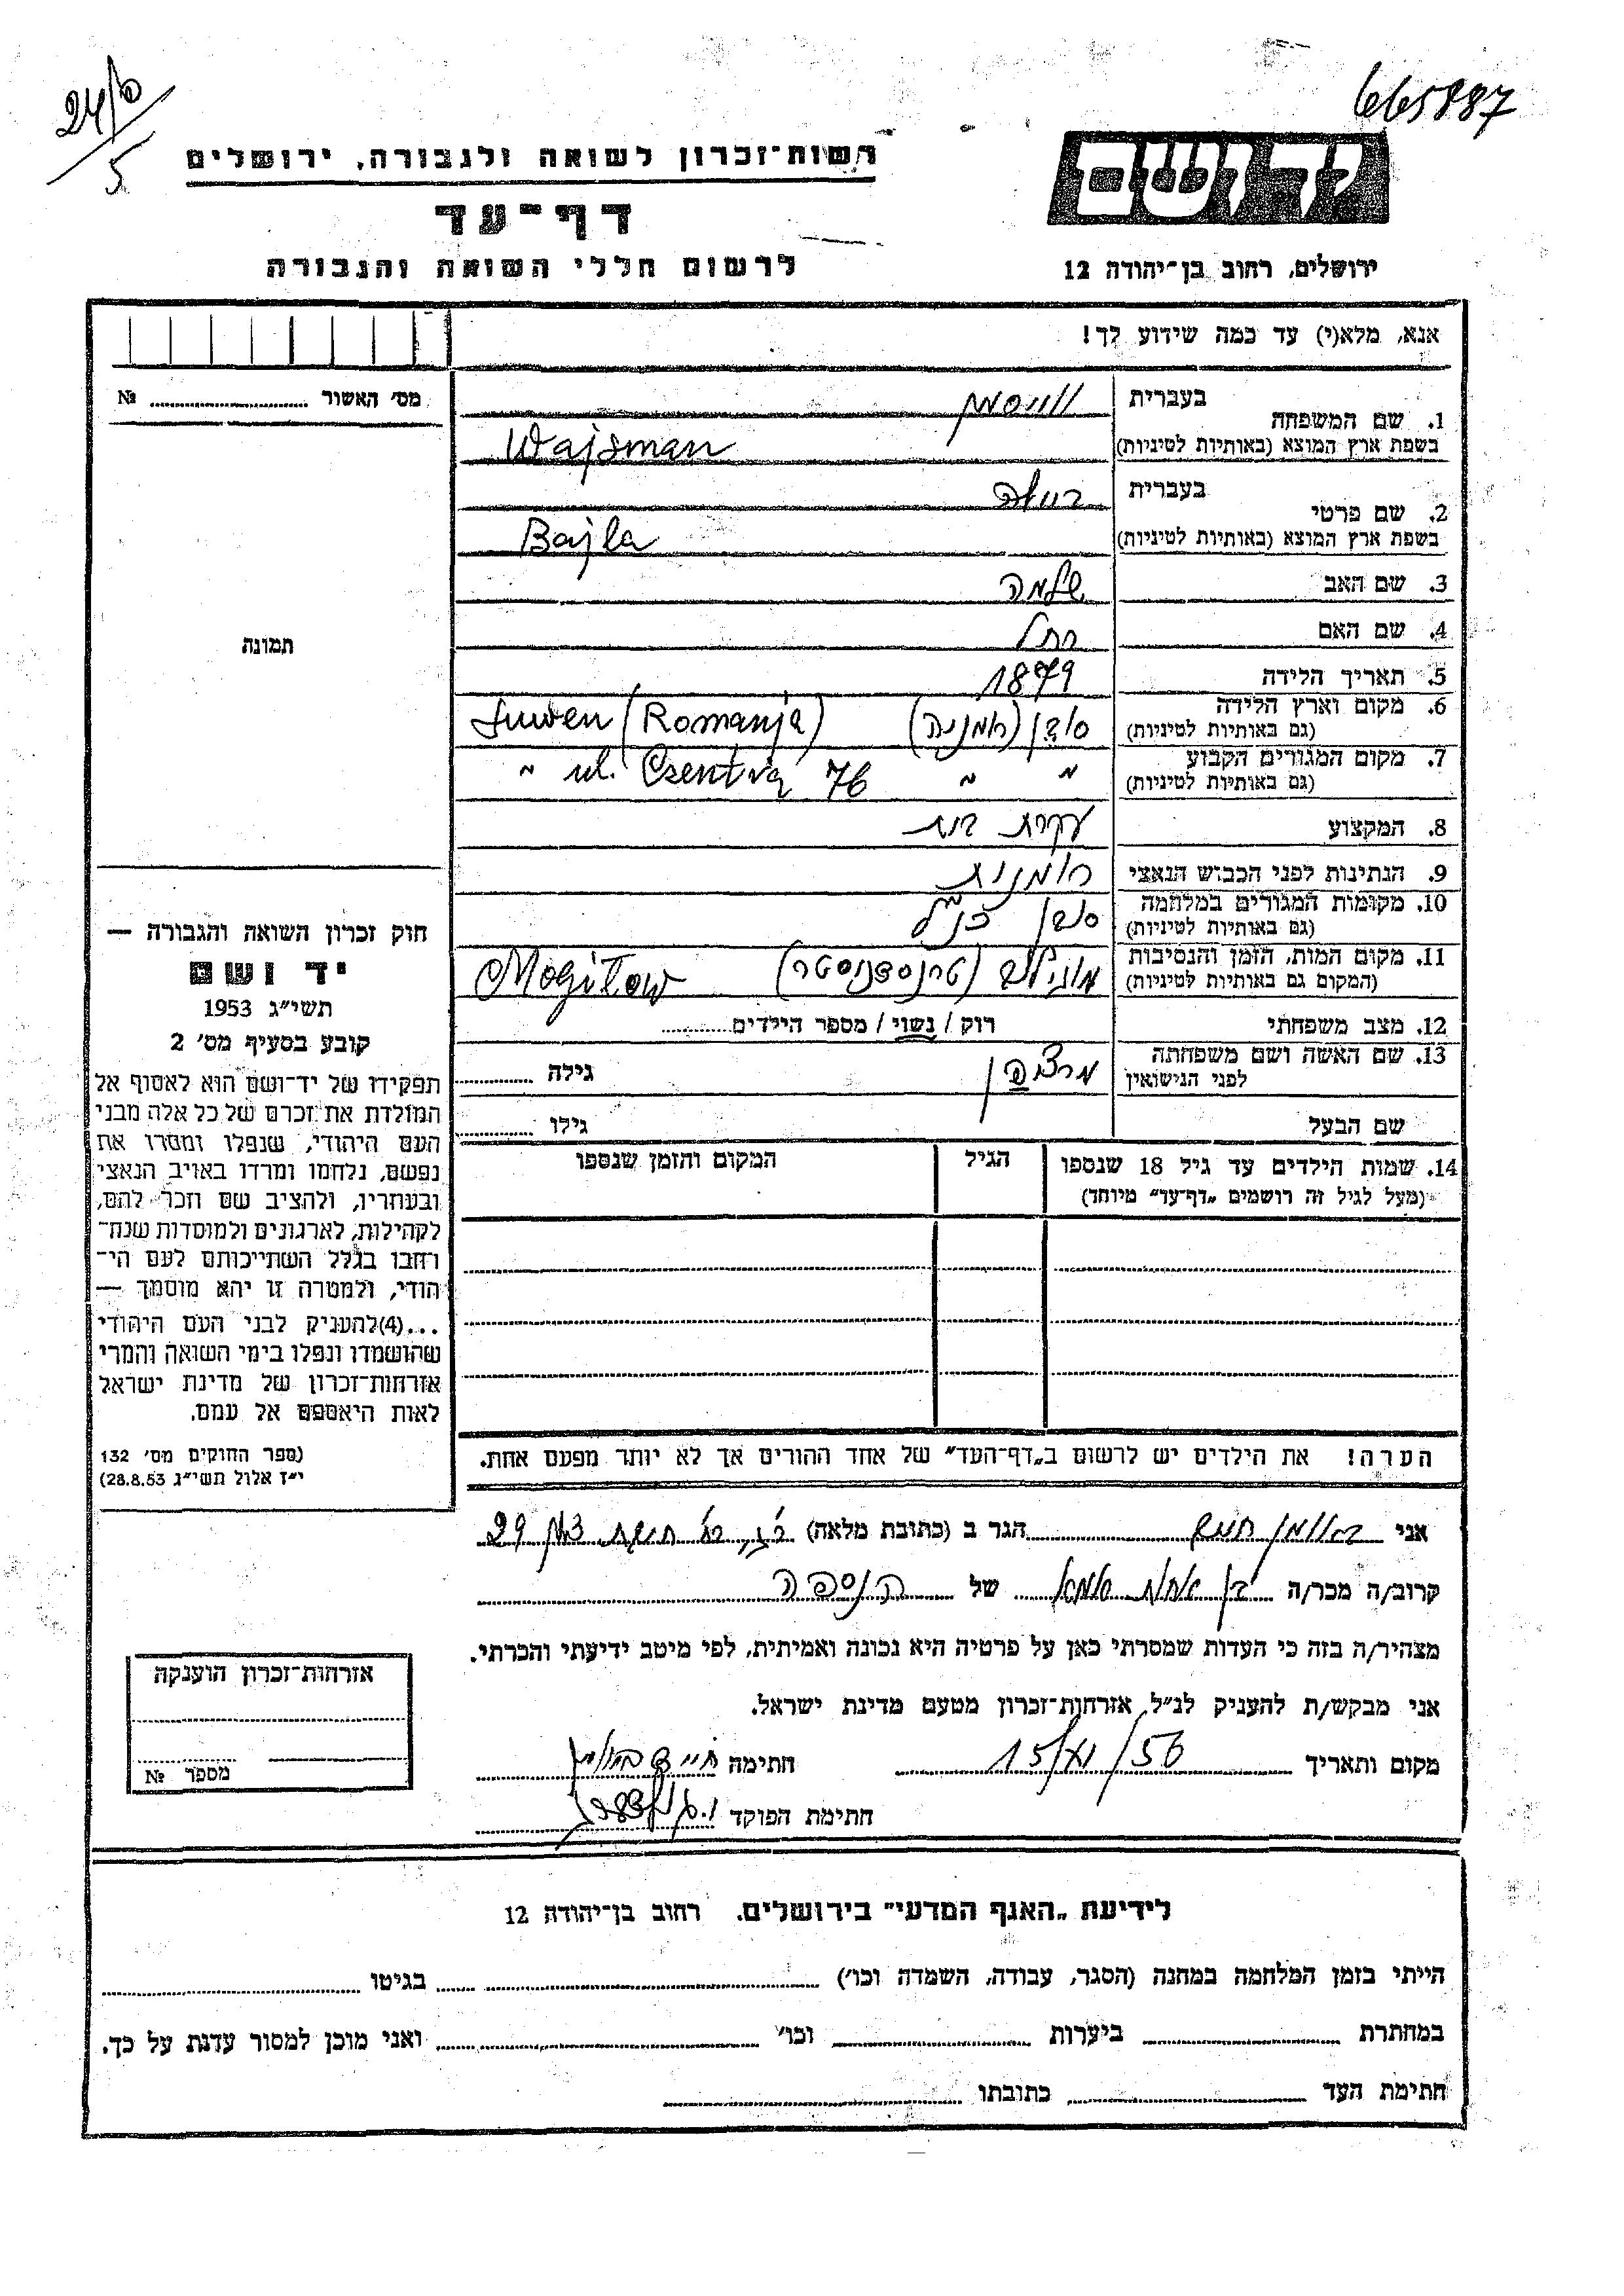 665887
24/6
5
יד ושם
רשות־זכרון לשואה ולגבורה, ירושלים
דף־עד
ירושלים, רחוב בן־יהודה 12
לרשום חללי השואה והגבורה
אנא, מלא(י) עד כמה שידוע לך!
מס׳ האשור № 
1. שם המשפחה
בעברית
ווייסמן
בשפת ארץ המוצא (באותיות לטיניות)
Wajsman
2. שם פרטי
בעברית
ביילה
בשפת ארץ המוצא (באותיות לטיניות)
Bajla
3. שם האב שלמה
4. שם האם רחל
5. תאריך הלידה 1879
6. מקום וארץ הלידה (רומניה) (Romanja)
(גם באותיות לטיניות)
7. מקום המגורים הקבוע " " " ul. 76
(גם באותיות לטיניות)
8. המקצוע עקרת בית
9. הנתינות לפני הכבוש הנאצי רומנית
10. מקומות המגורים במלחמה כנ״ל
(גם באותיות לטיניות)
11. מקום המות, הזמן והנסיבות מוגילב (טרנסדניסטר) Mogilow
(המקום גם באותיות לטיניות)
12. מצב משפחתי רוק / נשוי / מספר הילדים
13. שם האשה ושם משפחתה
לפני הנישואין
גילה
שם הבעל גילו
14. שמות הילדים עד גיל 18 שנספו הגיל המקום והזמן שנספו
(מעל לגיל זה רושמים „דף־עד״ מיוחד)
הערה! את הילדים יש לרשום ב„דף־העד״ של אחד ההורים אך לא יותר מפעם אחת.
תמונה
חוק זכרון השואה והגבורה —
יד ושם
תשי״ג 1953
קובע בסעיף מס׳ 2
תפקידו של יד־ושם הוא לאסוף אל
המולדת את זכרם של כל אלה מבני
העם היהודי, שנפלו ומסרו את
נפשם, נלחמו ומרדו באויב הנאצי
ובעוזריו, ולהציב שם וזכר להם,
לקהילות, לארגונים ולמוסדות שנח־
רחבו בגלל השתייכותם לעם הי־
הודי, ולמטרה זו יהא מוסמך —
...(4)להעניק לבני העם היהודי
שהושמדו ונפלו בימי השואה והמרי
אזרחות־זכרון של מדינת ישראל
לאות היאספם אל עמם.
(ספר החוקים מס׳ 132
י״ז אלול תשי״ג 28.8.53)
אני הגר ב (כתובת מלאה) 29
קרוב/ה מכר/ה בן של הנספה
מצהיר/ה בזה כי העדות שמסרתי כאן על פרטיה היא נכונה ואמיתית, לפי מיטב ידיעתי והכרתי.
אני מבקש/ת להעניק לנ״ל אזרחות־זכרון מטעם מדינת ישראל.
מקום ותאריך 15/VI/56 חתימה
חתימת הפוקד
אזרחות־זכרון הוענקה
מספר №
לידיעת „האגף המדעי״ בירושלים. רחוב בן־יהודה 12
הייתי בזמן המלחמה במחנה (הסגר, עבודה, השמדה וכו׳) בגיטו
במחתרת ביערות וכו׳ ואני מוכן למסור עדות על כך.
חתימת העד כתובתו